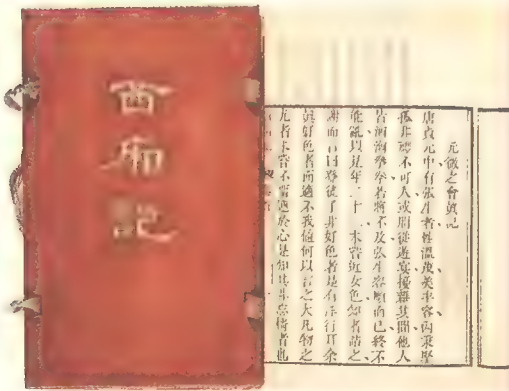 西廂記
元微之會真記
唐貞元中有張生者性溫茂美丰容內秉堅
孤非禮不可入或朋從遊宴擾雜其間他人
皆洶洶拳拳若將不及張生容順而已終不
能亂以是年二十二未嘗近女色知者詰之
謝而言曰登徒子非好色者是有淫行耳余
真好色者而適不我值何以言之大凡物之
尤者未嘗不留連於心是知其非忘情者也